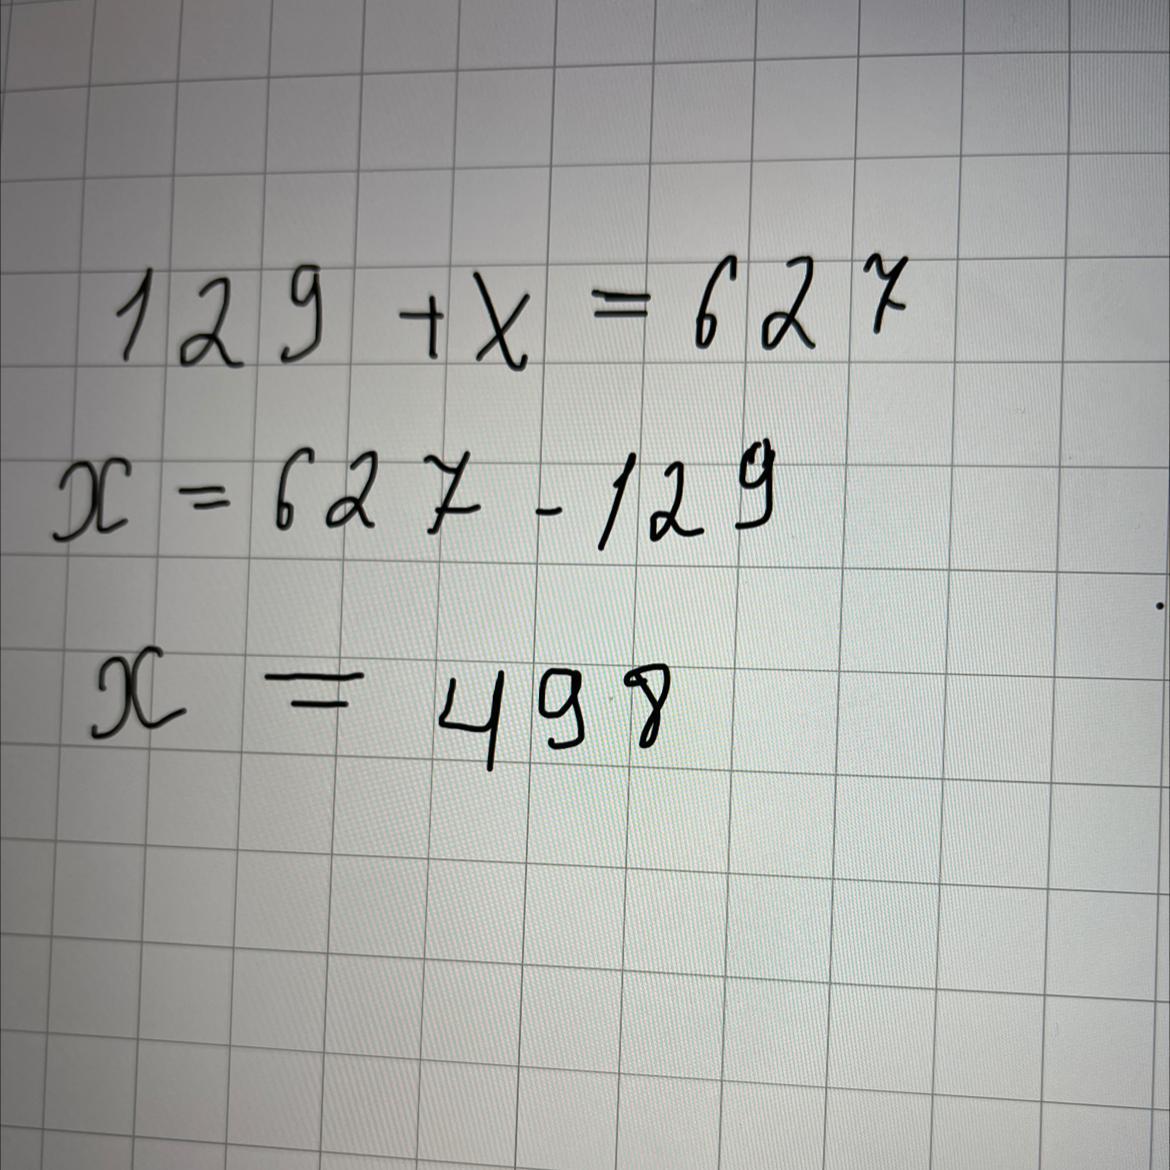 129 + x = 627
x = 627 - 129
x = 498